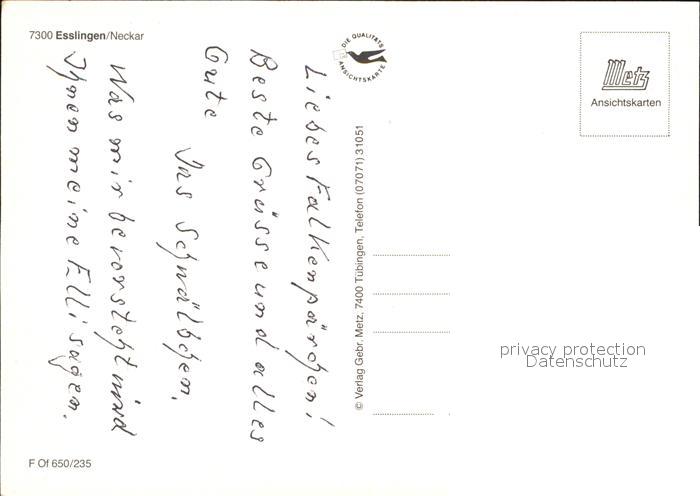 7300 Esslingen/Neckar
DIE QUALITÄTS
ANSICHTSKARTE
Metz
Ansichtskarten
Liebes Falkenpärchen!
Beste Grüsse und alles
Gute
Das Schwälbchen.
Was mir bevorsteht wird
Ihnen meine Elli sagen.
© Verlag Gebr. Metz, 7400 Tübingen, Telefon (07071) 31051
privacy protection
Datenschutz
F Of 650/235